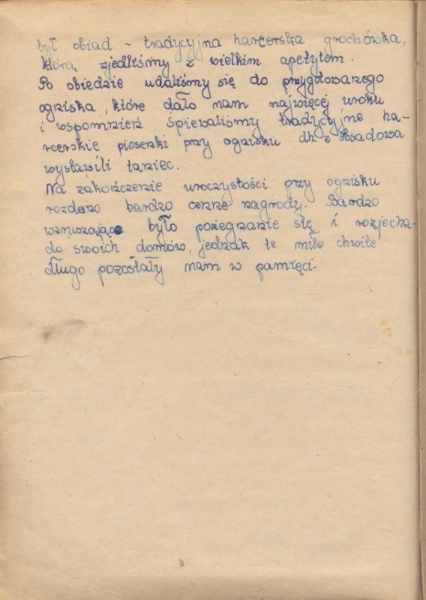 był obiad - tradycyjna harcerska grochówka,
którą zjedliśmy z wielkim apetytem.
Po obiedzie udaliśmy się do przygotowanego
ogniska, które dało nam najwięcej uroku
i wspomnień śpiewaliśmy tradycyjne ha-
rcerskie piosenki przy ognisku dh. z Osadowa
wystawili taniec.
Na zakończenie uroczystości przy ognisku
rozdano bardzo cenne nagrody. Bardzo
wzruszające było pożegnanie się i rozjecha-
do swoich domów, jednak te miłe chwile
długo pozostały nam w pamięci.